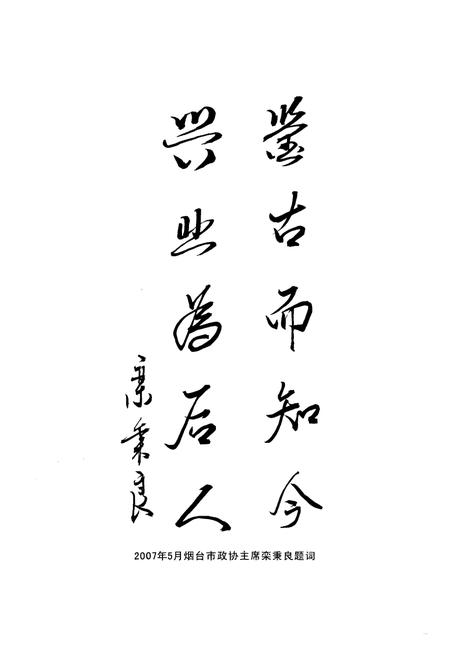 鉴古而知今
兴业为后人
栾秉良
2007年5月烟台市政协主席栾秉良题词